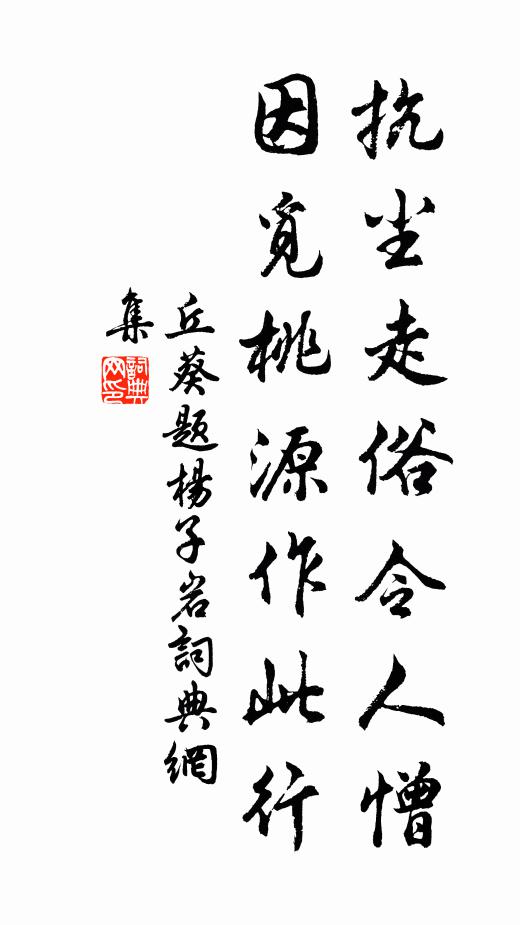 抗尘走俗令人憎
因觅桃源作此行
丘葵题杨子岩詞典網
集
詞典網印